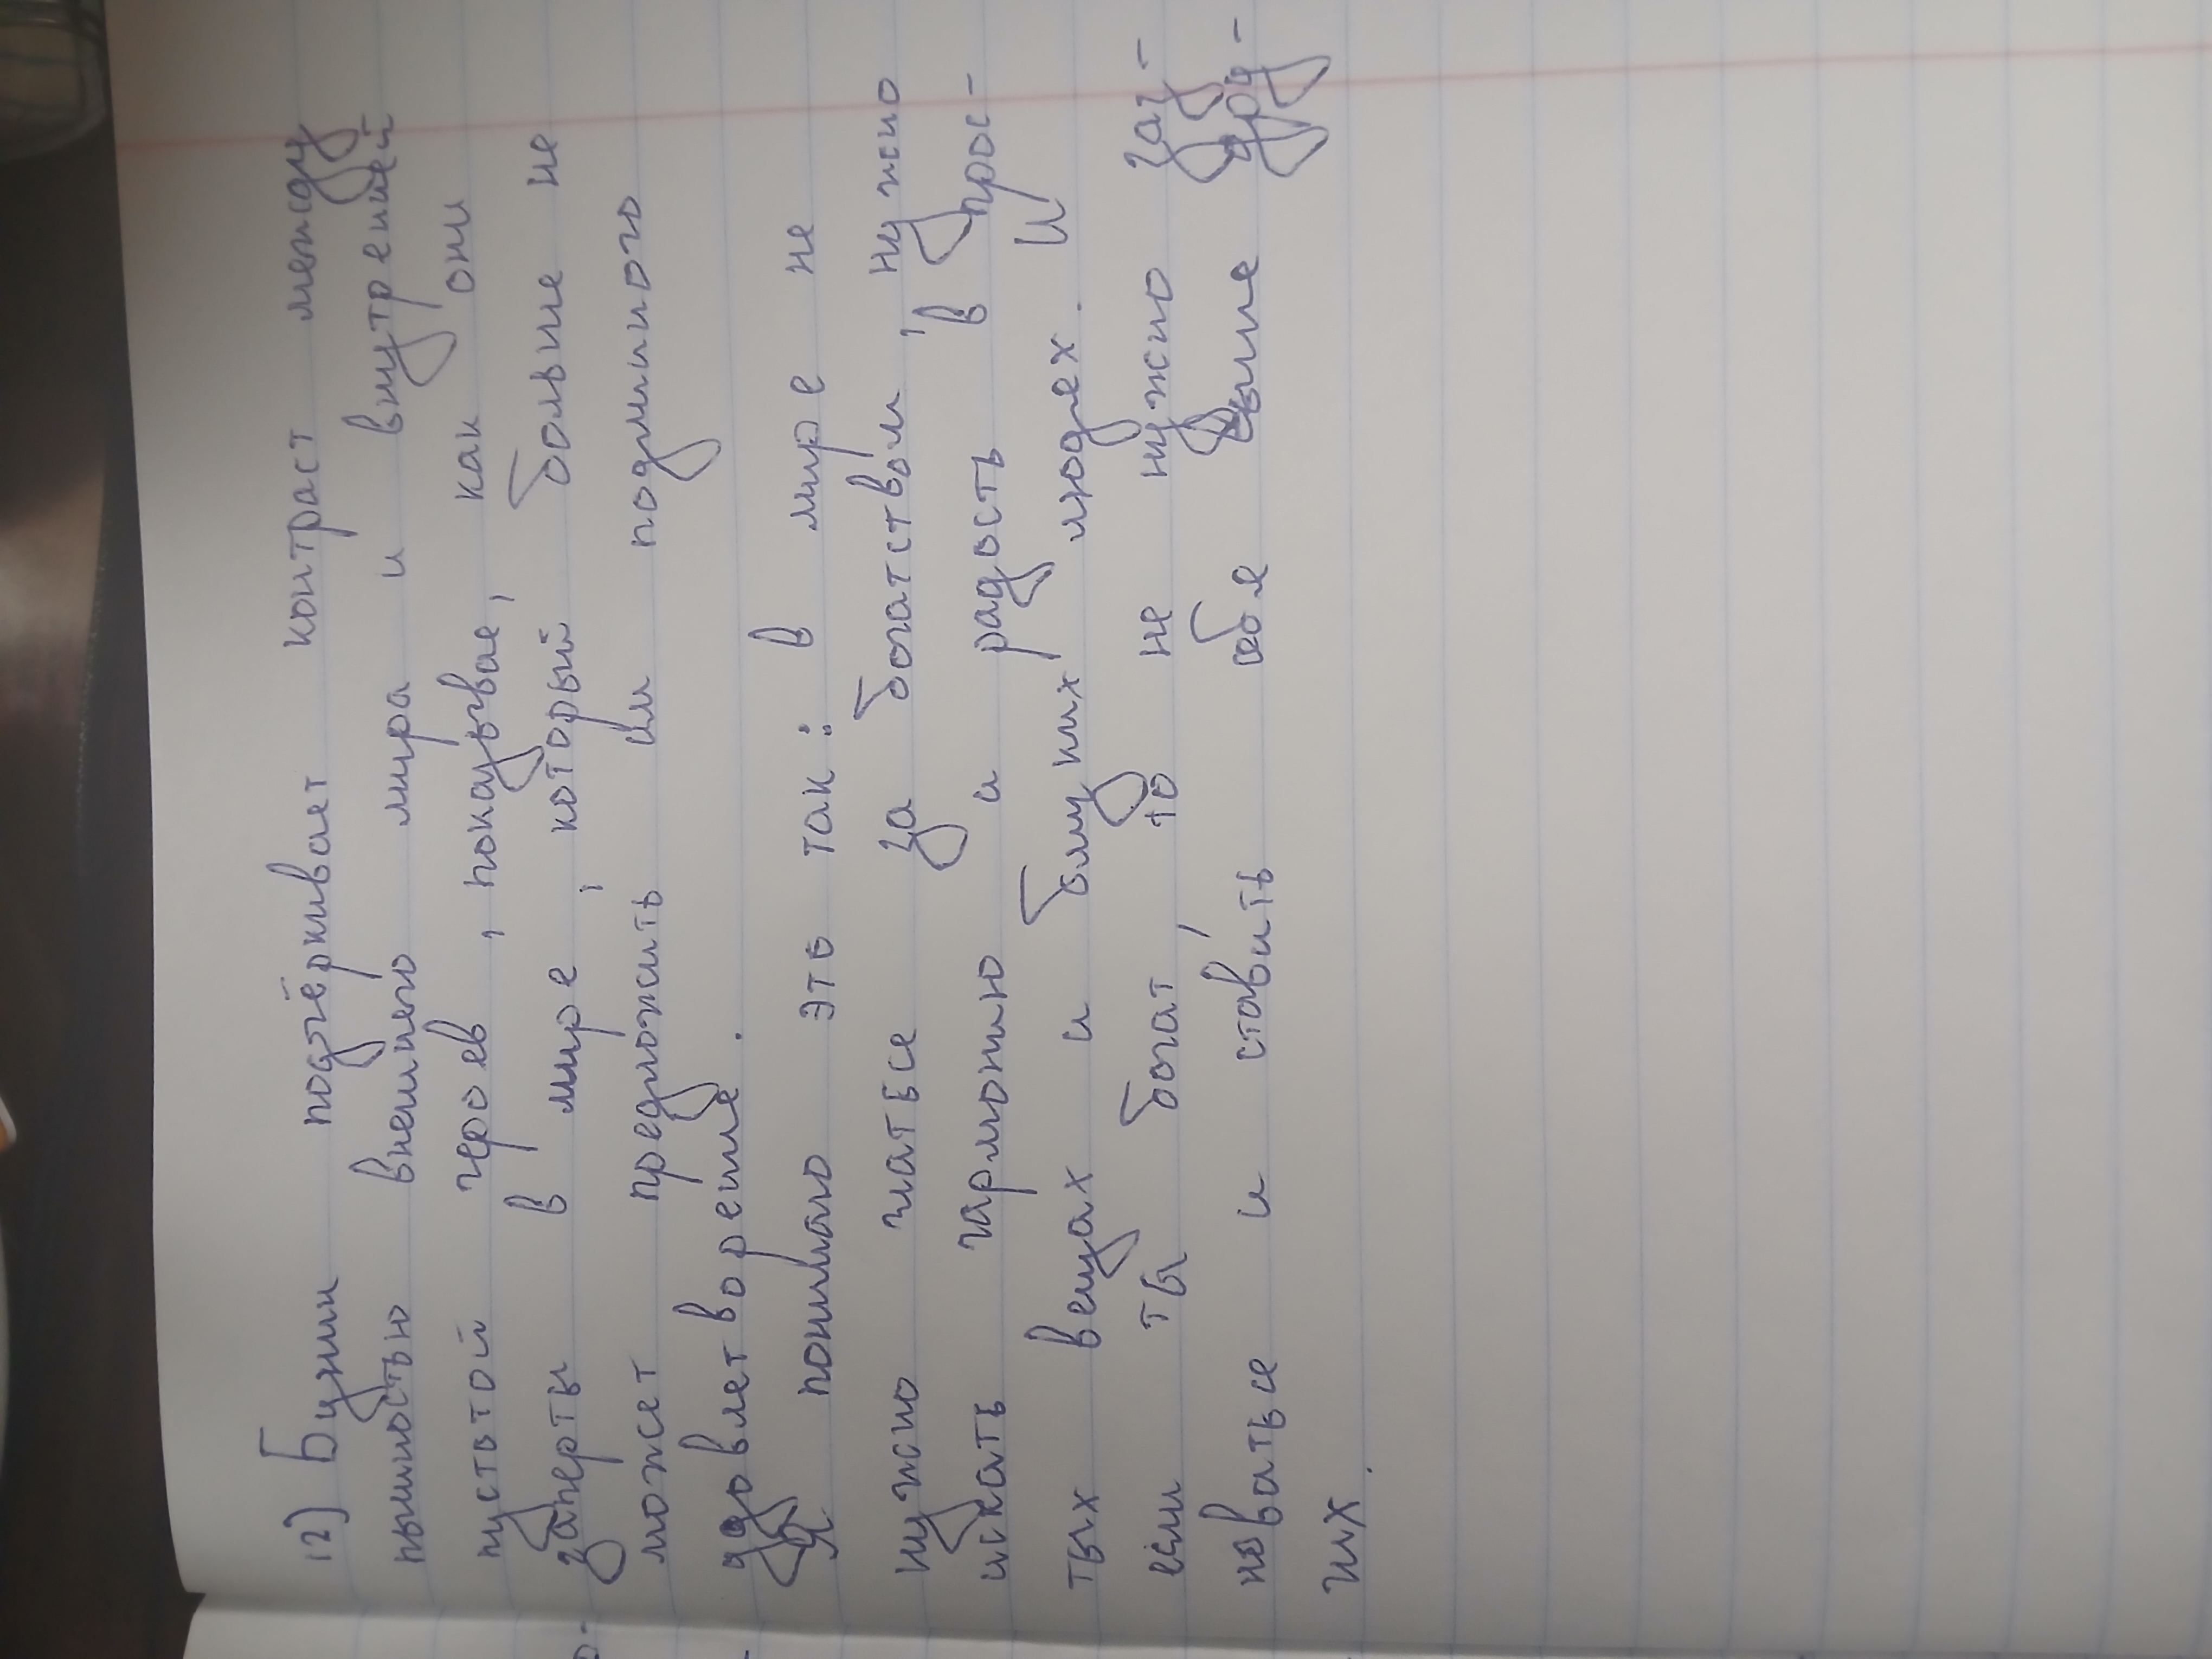 12) Бунин подчёркивает контраст между
пышностью внешнего мира и внутренней
пустотой героев, показывая, как они
заперты в мире, который больше не
может предложить им подлинного
удовлетворения.
Я понимаю это так: в мире не
нужно гнаться за богатством, нужно
искать гармонию и радость в прос-
тых вещах и близких людях. И
если ты богат, то не нужно заз-
новаться и ставить себя выше дру-
гих.
о-
-